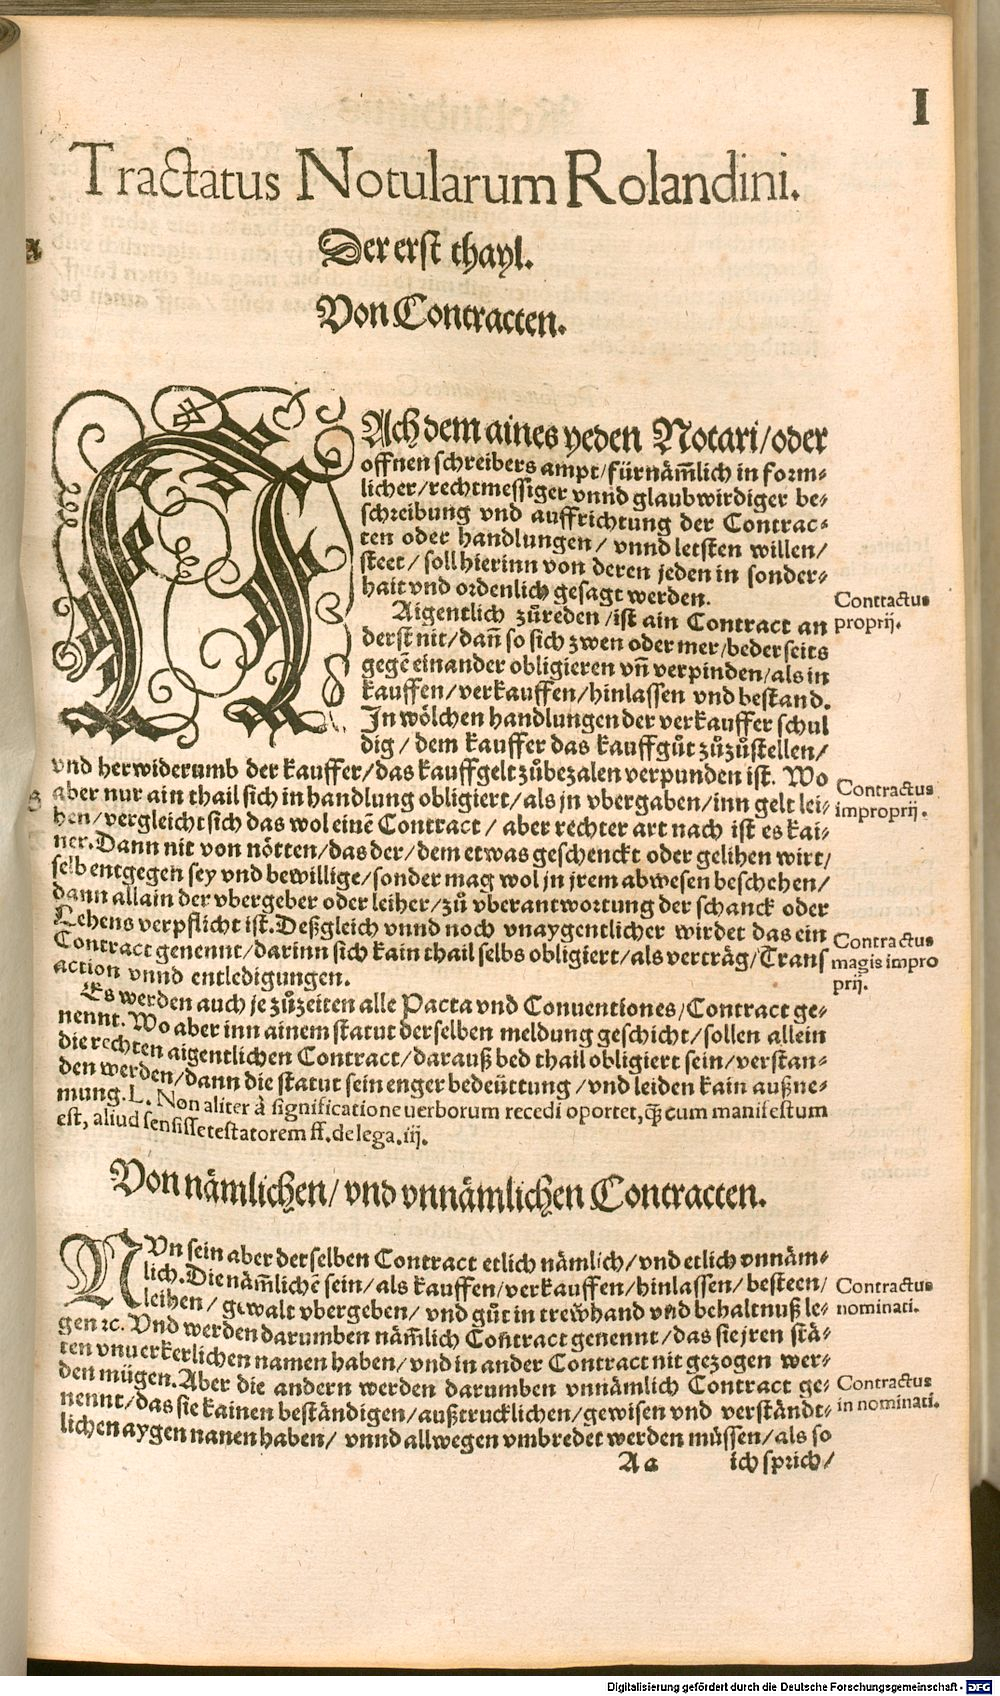 I
Tractatus Notularum Rolandini.
Der erst thayl.
Von Contracten.
NAch dem aines yeden Notari/oder
offnen schreibers ampt/fürnäm̃lich in form-
licher/rechtmessiger vnnd glaubwirdiger be-
schreibung vnd auffrichtung der Contrac-
ten oder handlungen/ vnnd letsten willen/
steet/ soll hierinn von deren jeden in sonder-
hait vnd ordenlich gesagt werden.
Aigentlich zůreden/ist ain Contract an
derst nit/dañ so sich zwen oder mer/beder seits
gegē einander obligieren vñ verpinden/als in
kauffen/verkauffen/hinlassen vnd bestand.
In wölchen handlungen der verkauffer schul
dig/ dem kauffer das kauffgůt zůzůstellen/
vnd herwiderumb der kauffer/das kauffgelt zůbezalen verpunden ist. Wo
aber nur ain thail sich in handlung obligiert/als jn vbergaben/inn gelt lei-
hen/vergleicht sich das wol einē Contract/ aber rechter art nach ist es kai-
ner. Dann nit von nötten/das der/dem etwas geschenckt oder gelihen wirt/
selb entgegen sey vnd bewillige/sonder mag wol jn jrem abwesen beschehen/
dann allain der vbergeber oder leiher/zů vberantwortung der schanck oder
Lehens verpflicht ist. Deßgleich vnnd noch vnaygentlicher wirdet das ein
Contract genennt/darinn sich kain thail selbs obligiert/als verträg/Trans
action vnnd entledigungen.
Es werden auch je zůzeiten alle Pacta vnd Conuentiones/Contract ge-
nennt. Wo aber inn ainem statut derselben meldung geschicht/sollen allein
die rechten aigentlichen Contract/darauß bed thail obligiert sein/verstan-
den werden/dann die statut sein enger bedeüttung/vnd leiden kain außne-
mung. L. Non aliter à significatione uerborum recedi oportet, q̃ cum manifestum
est, aliud sensisse testatorem ff. de lega. iij.
Contractus
proprij.
Contractus
improprij.
Contractus
magis impro
prij.
Von nämlichen/ vnd vnnämlichen Contracten.
NVn sein aber derselben Contract etlich nämlich/ vnd etlich vnnäm-
lich. Die näm̃lichē sein/als kauffen/verkauffen/hinlassen/besteen/
leihen/ gewalt vbergeben/ vnd gůt in trewhand vnd behaltnuß le-
gen ꝛc. Vnd werden darumben näm̃lich Contract genennt/das sie jren stä-
ten vnuerkerlichen namen haben/ vnd in ander Contract nit gezogen wer-
den mügen. Aber die andern werden darumben vnnämlich Contract ge-
nennt/das sie kainen beständigen/außtrucklichen/gewisen vnd verständt-
lichen aygen nanen haben/ vnnd allwegen vmbredet werden müssen/als so
Contractus
nominati.
Contractus
in nominati.
Aa
ich sprich/
Digitalisierung gefördert durch die Deutsche Forschungsgemeinschaft - DFG